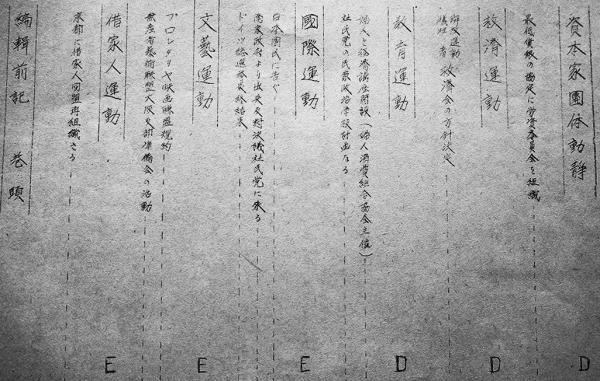 資本家團体動静 D
最低賃銀の協定に労資委員会を組織
救濟運動 D
解放運動犠牲者救済会の方針決定
教育運動 D
婦人経済講座開設(婦人消費組合協会主催)
社民党の民衆政治学校計画なる
國際運動 E
日本国民に告ぐ
南京政府より出兵反対決議社民党に来る
ドイツ総選挙最終結果
文藝運動 E
プロレタリヤ映画聯盟規約
無産者藝術聯盟大阪支部準備会の活動
借家人運動 E
京都に借家人同盟再組織さる
編輯前記 巻頭